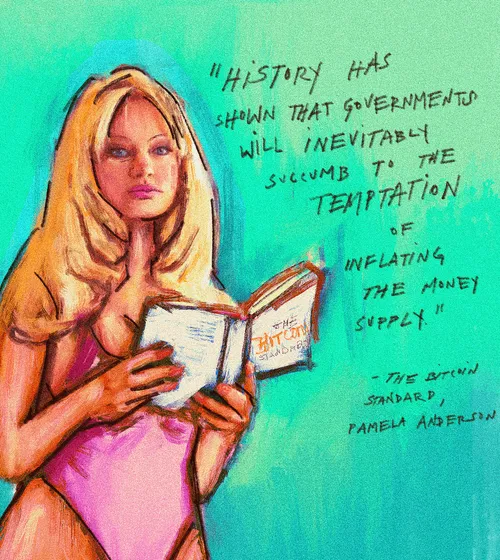 "HISTORY HAS
SHOWN THAT GOVERNMENTS
WILL INEVITABLY
SUCCUMB TO THE
TEMPTATION
OF
INFLATING
THE MONEY
SUPPLY."
- THE BITCOIN
STANDARD,
PAMELA ANDERSON
THE
BITCOIN
STANDARD